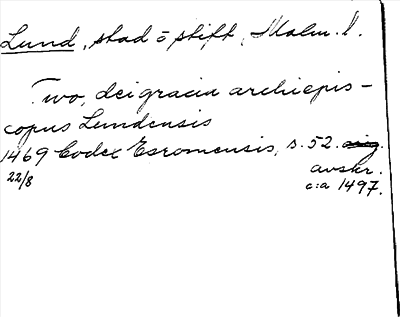 Lund, stad o stift, Malm. l.
Two, dei gracia archiepis-
copus Lundensis
1469 Codex Esromensis, s. 52. orig.
22/8 avskr.
c:a 1497.